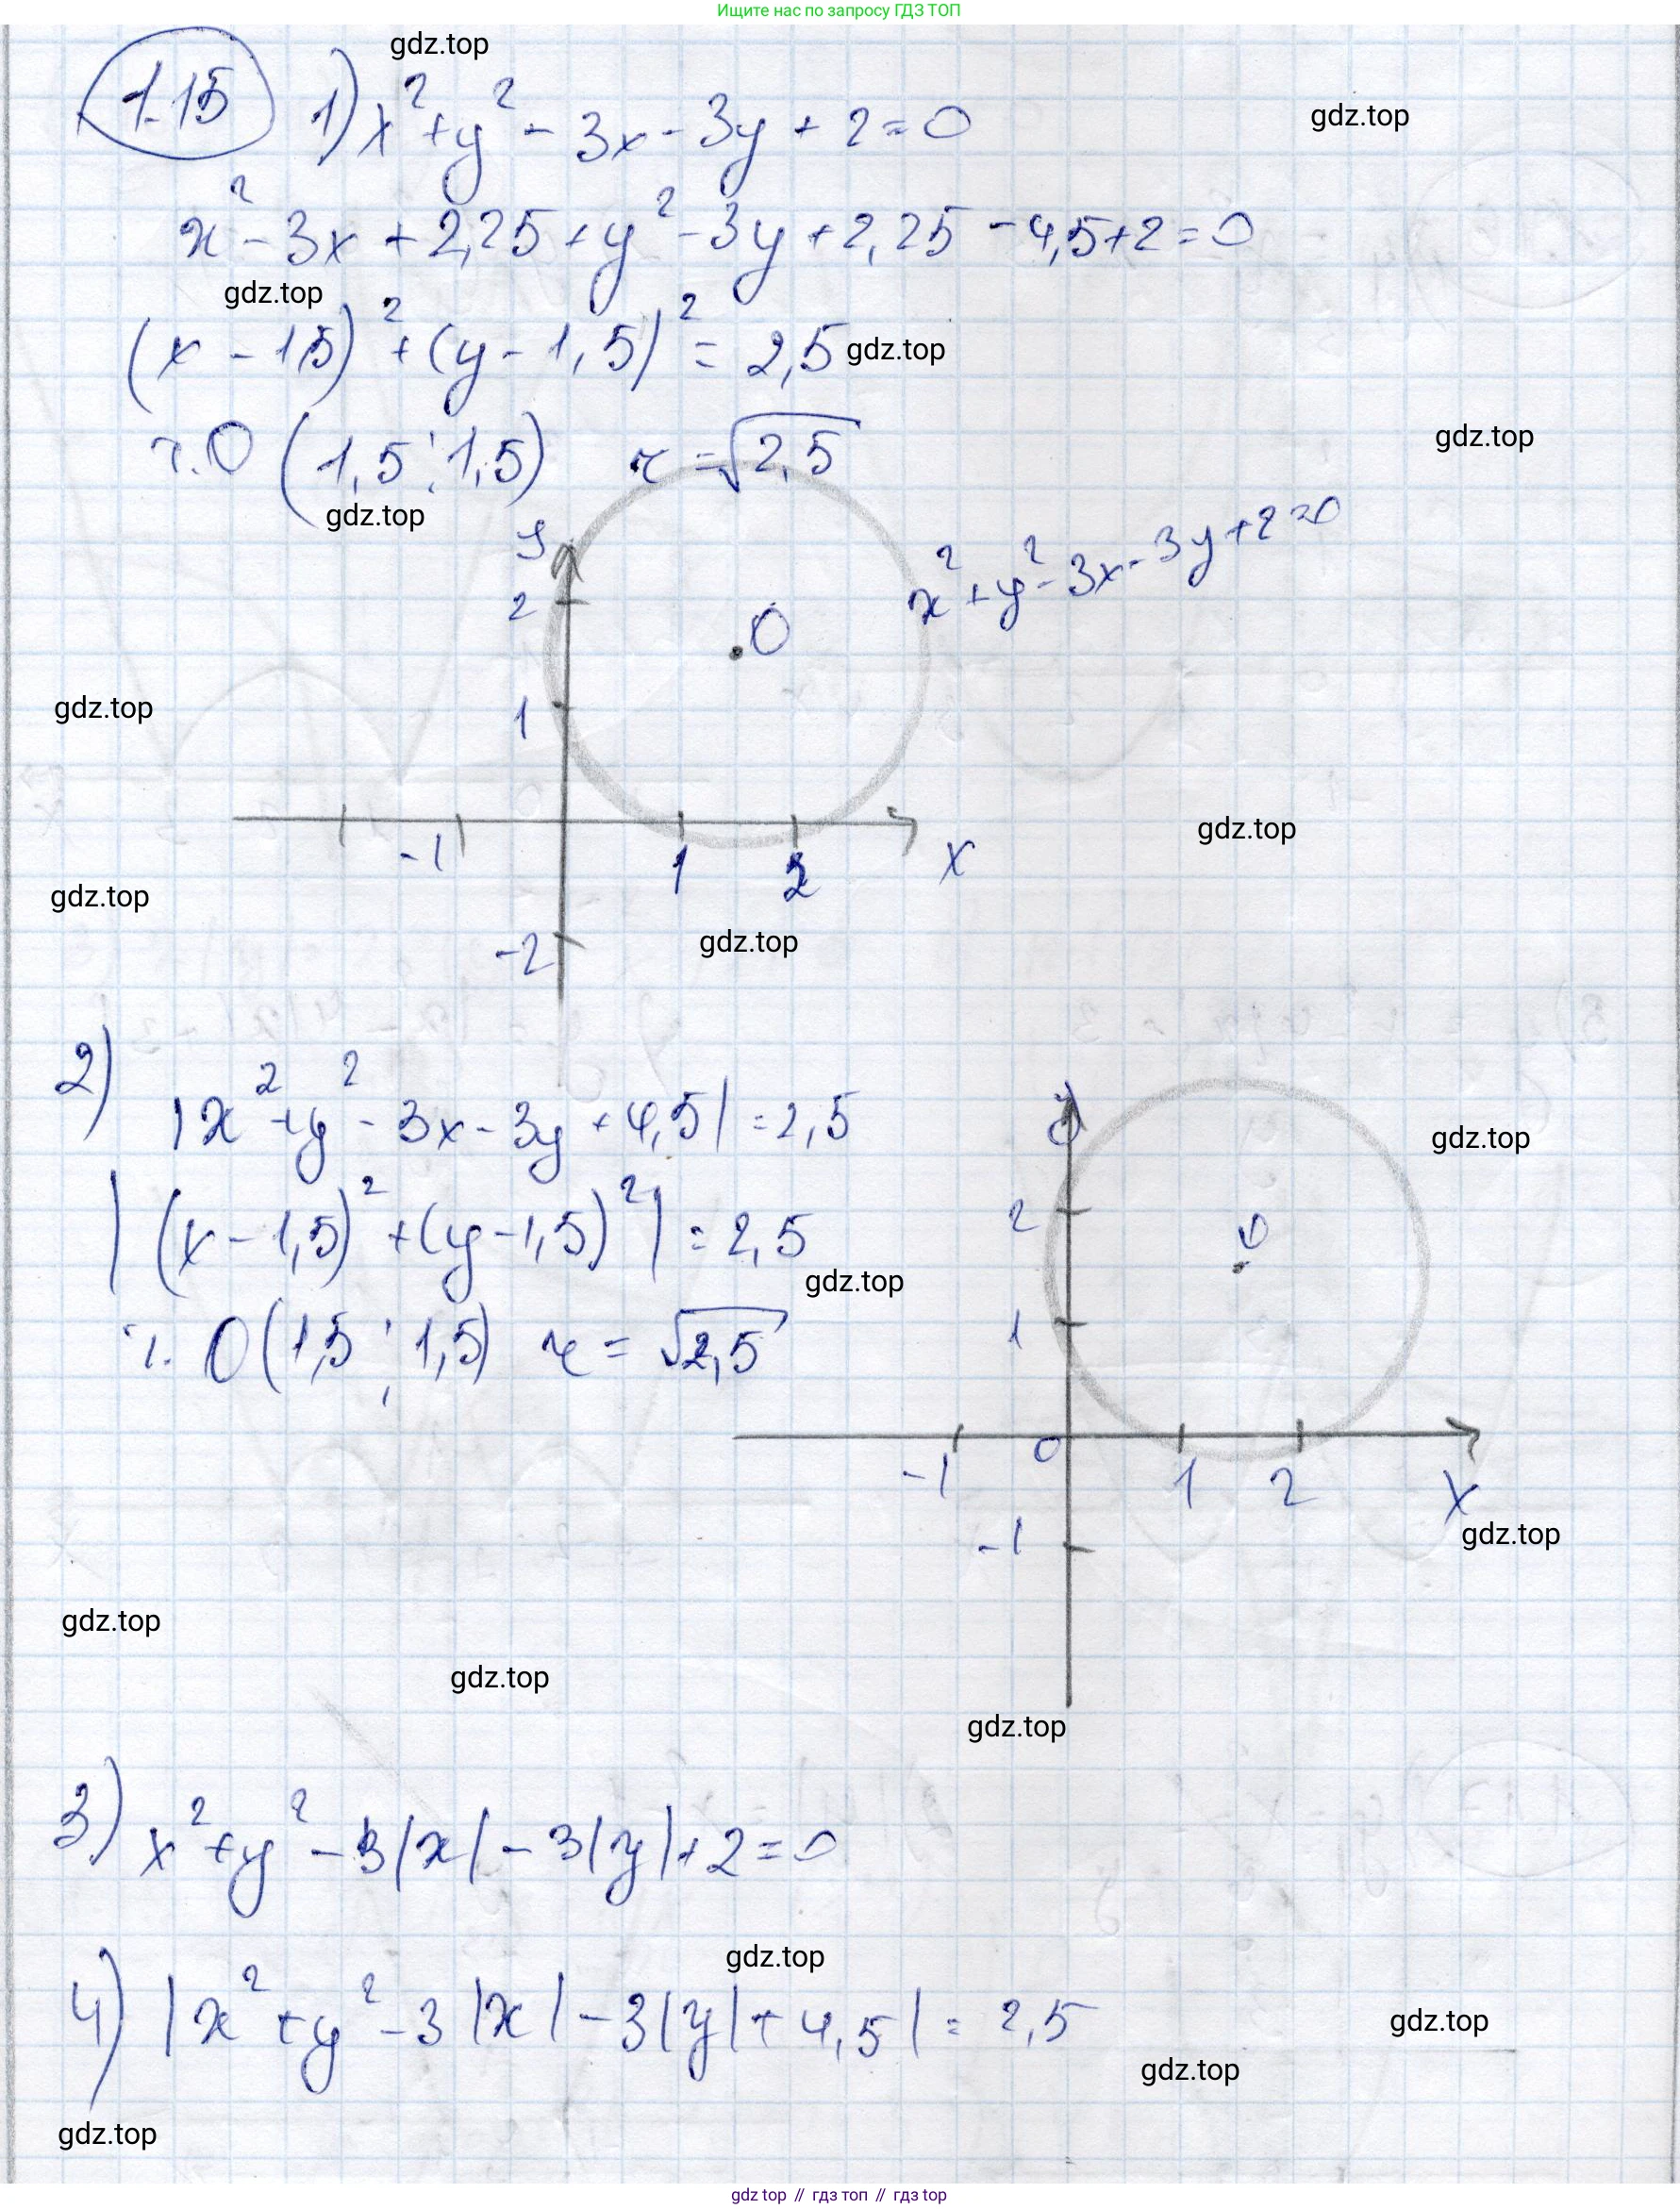 Ищите нас по запросу ГДЗ ТОП
gdz.top
1.15 1) x² + y² - 3x - 3y + 2 = 0
gdz.top
x² - 3x + 2,25 + y² - 3y + 2,25 - 4,5 + 2 = 0
gdz.top
(x - 1,5)² + (y - 1,5)² = 2,5
gdz.top
т. O (1,5 ; 1,5) r = √2,5
gdz.top
gdz.top
x² + y² - 3x - 3y + 2 = 0
y
2
O
1
gdz.top
gdz.top
-1 1 2 x
gdz.top
gdz.top
-2
2) |x² + y² - 3x - 3y + 4,5| = 2,5
y
gdz.top
|(x - 1,5)² + (y - 1,5)²| = 2,5
2
O
gdz.top
т. O (1,5 ; 1,5) r = √2,5
1
0
-1 1 2 x
gdz.top
-1
gdz.top
gdz.top
gdz.top
3) x² + y² - 3|x| - 3|y| + 2 = 0
gdz.top
4) |x² + y² - 3|x| - 3|y| + 4,5| = 2,5
gdz.top
gdz.top
gdz.top
gdz top // гдз топ // гдз top